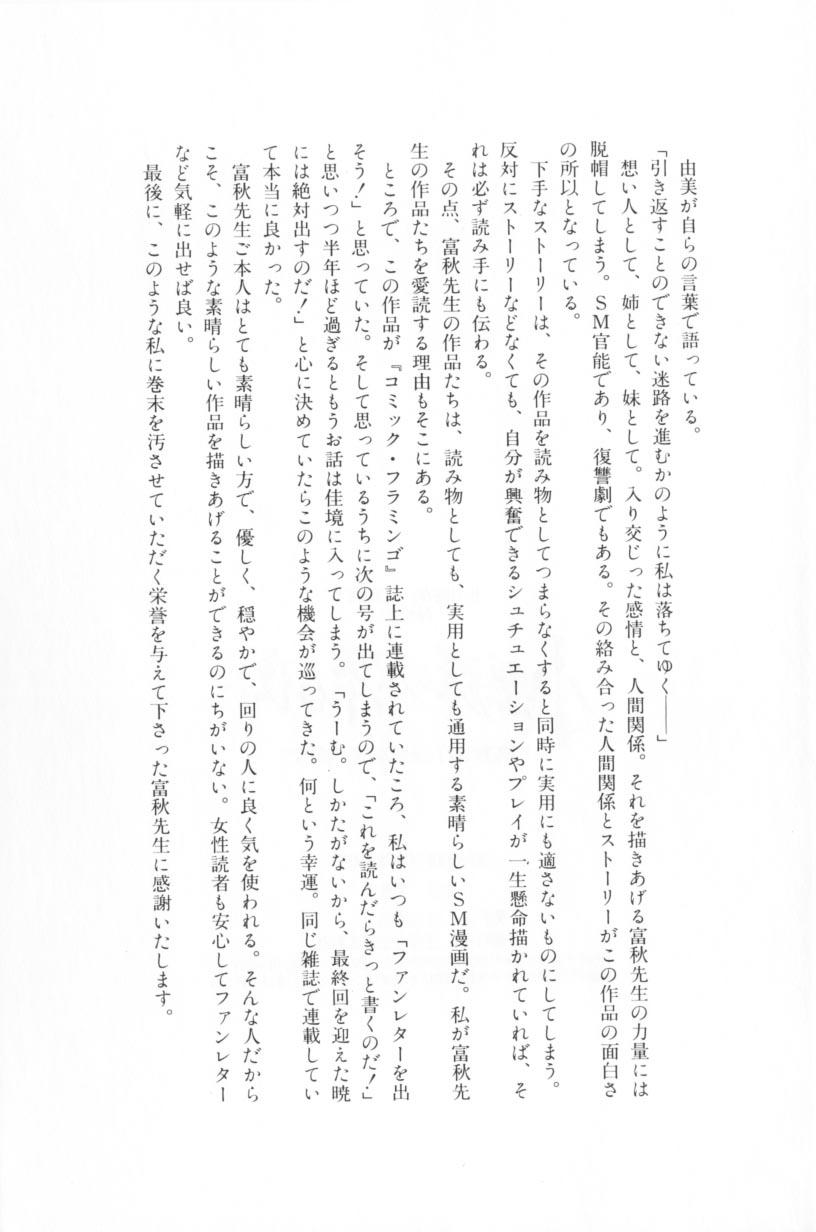 由美が自らの言葉で語っている。
「引き返すことのできない迷路を進むかのように私は落ちてゆく――」
想い人として、姉として、妹として。入り交じった感情と、人間関係。それを描きあげる富秋先生の力量には
脱帽してしまう。SM官能であり、復讐劇でもある。その絡み合った人間関係とストーリーがこの作品の面白さ
の所以となっている。
下手なストーリーは、その作品を読み物としてつまらなくすると同時に実用にも適さないものにしてしまう。
反対にストーリーなどなくても、自分が興奮できるシュチュエーションやプレイが一生懸命描かれていれば、そ
れは必ず読み手にも伝わる。
その点、富秋先生の作品たちは、読み物としても、実用としても通用する素晴らしいSM漫画だ。私が富秋先
生の作品たちを愛読する理由もそこにある。
ところで、この作品が『コミック・フラミンゴ』誌上に連載されていたころ、私はいつも「ファンレターを出
そう!」と思っていた。そして思っているうちに次の号が出てしまうので、「これを読んだらきっと書くのだ!」
と思いつつ半年ほど過ぎるともうお話は佳境に入ってしまう。「うーむ。しかたがないから、最終回を迎えた暁
には絶対出すのだ!」と心に決めていたらこのような機会が巡ってきた。何という幸運。同じ雑誌で連載してい
て本当に良かった。
富秋先生ご本人はとても素晴らしい方で、優しく、穏やかで、回りの人に良く気を使われる。そんな人だから
こそ、このような素晴らしい作品を描きあげることができるのにちがいない。女性読者も安心してファンレター
など気軽に出せば良い。
最後に、このような私に巻末を汚させていただく栄誉を与えて下さった富秋先生に感謝いたします。